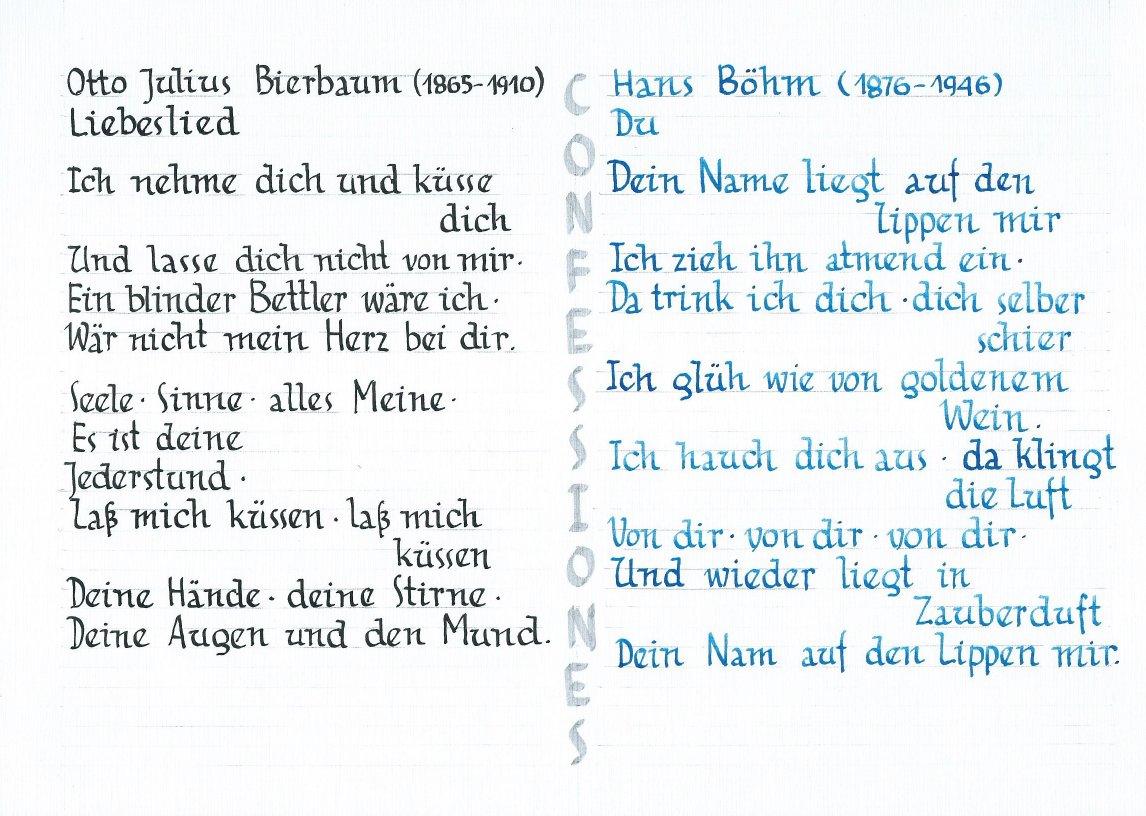 Otto Julius Bierbaum (1865-1910)
Liebeslied
Ich nehme dich und küsse
dich
Und lasse dich nicht von mir·
Ein blinder Bettler wäre ich·
Wär nicht mein Herz bei dir.
Seele· Sinne· alles Meine·
Es ist deine
Jederstund·
Laß mich küssen· laß mich
küssen
Deine Hände· deine Stirne·
Deine Augen und den Mund.
CONFESSIONES
Hans Böhm (1876-1946)
Du
Dein Name liegt auf den
Lippen mir
Ich zieh ihn atmend ein·
Da trink ich dich·dich selber
schier
Ich glüh wie von goldenem
Wein.
Ich hauch dich aus· da klingt
die Luft
Von dir· von dir· von dir·
Und wieder liegt in
Zauberduft
Dein Nam auf den Lippen mir.